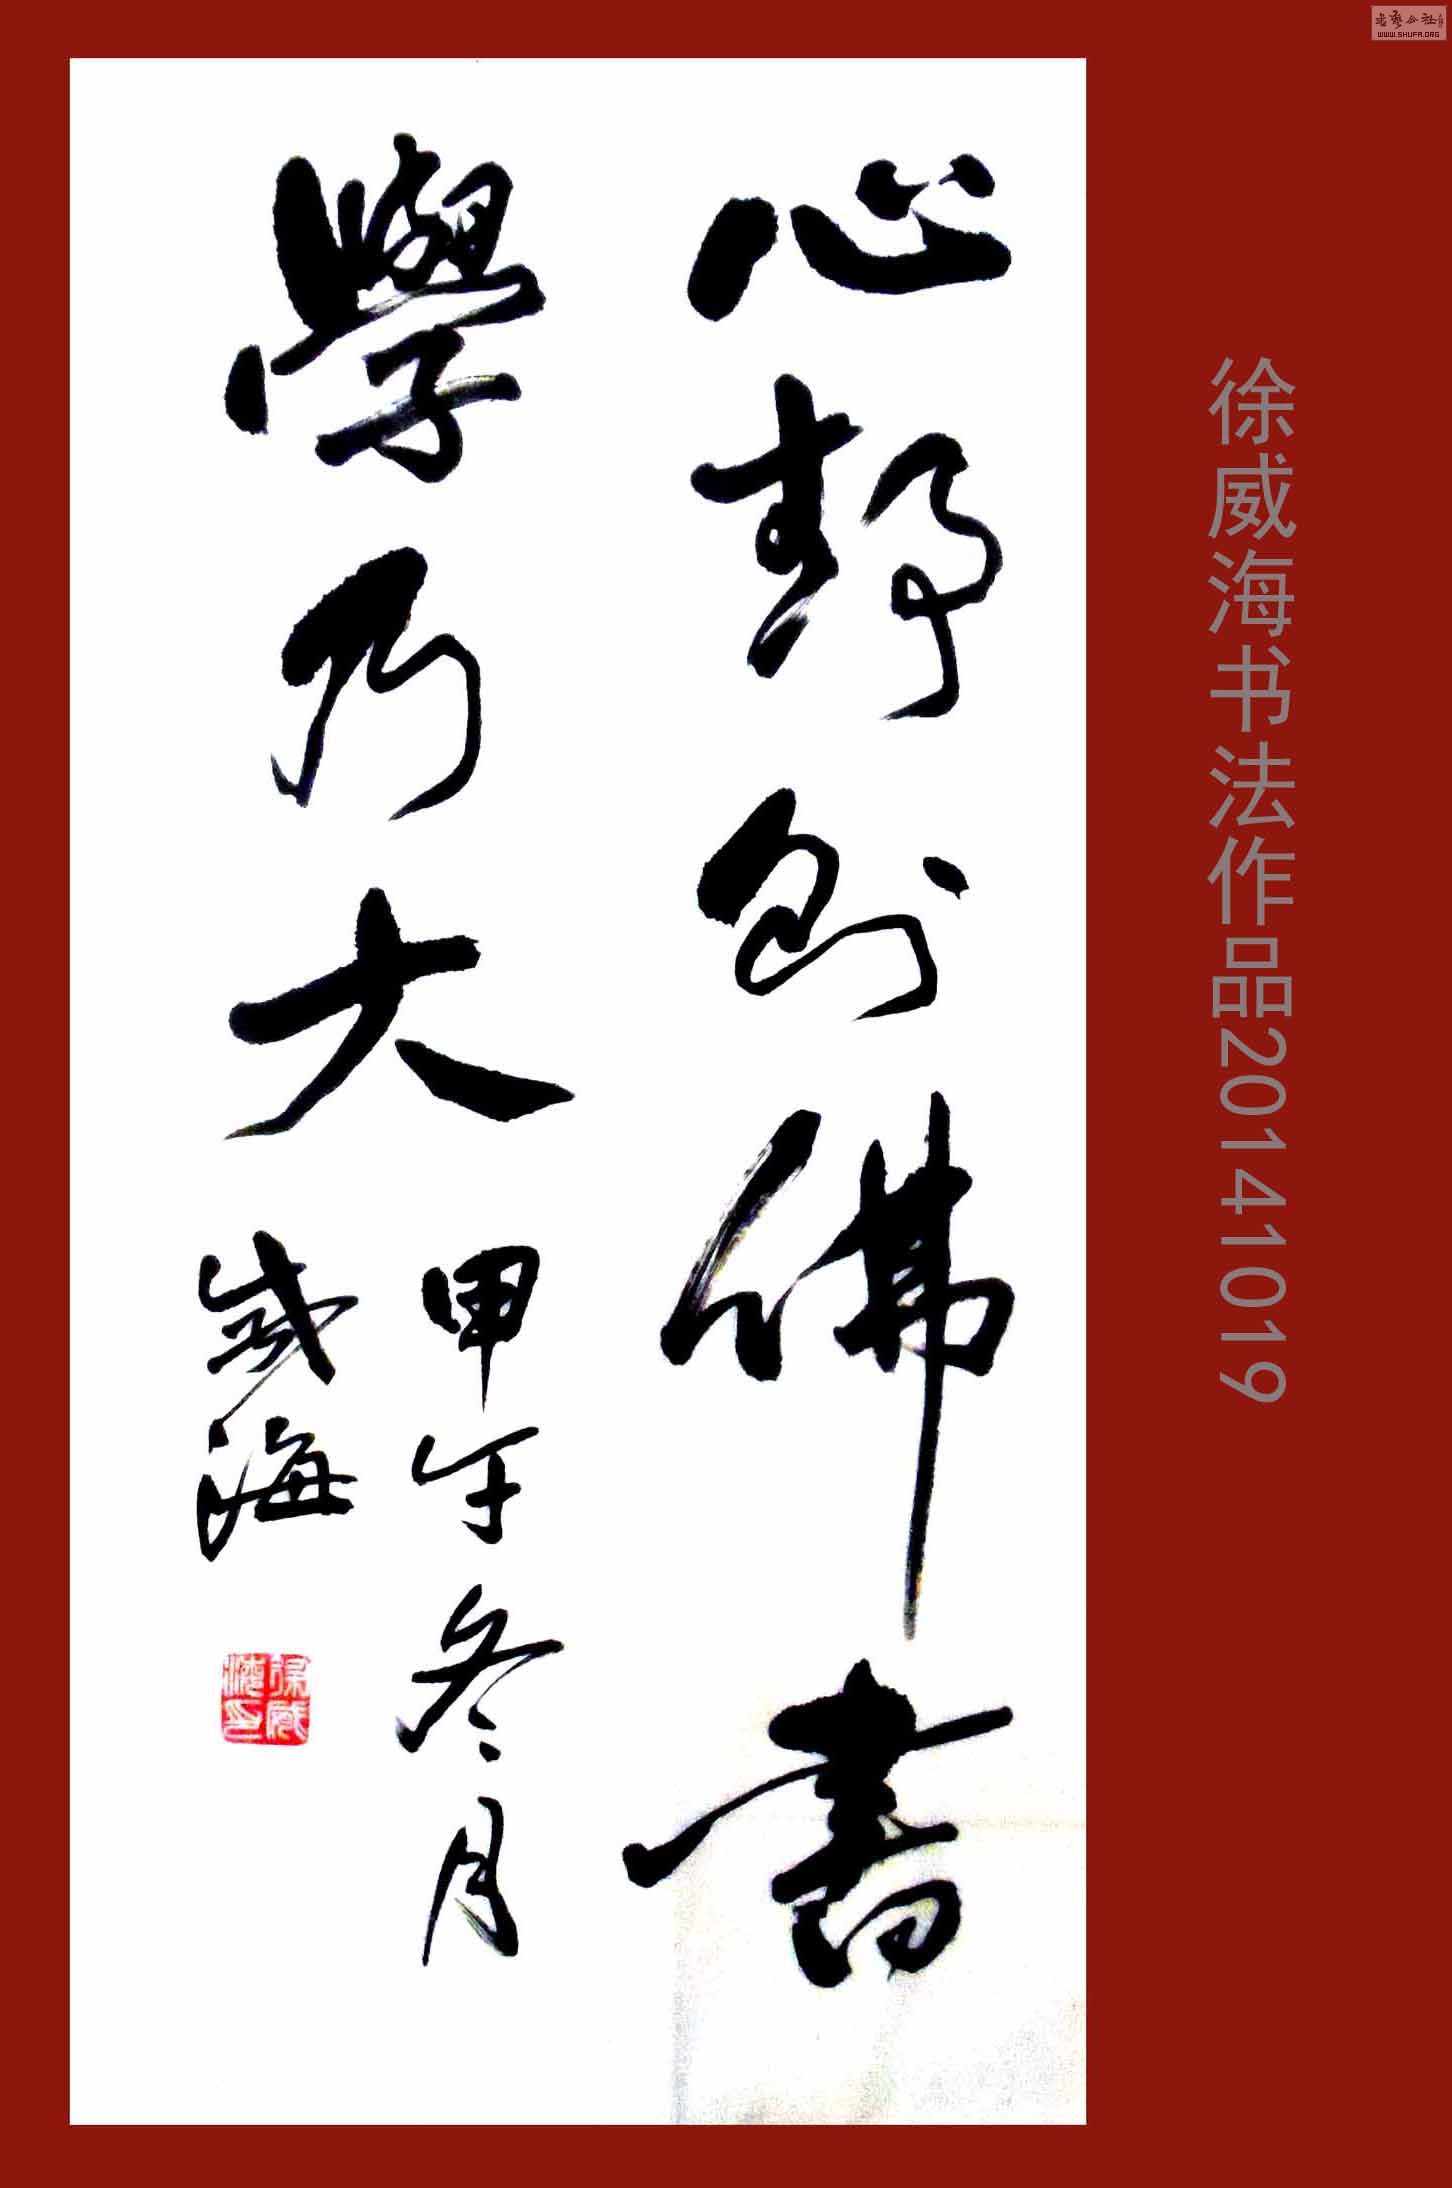 心靜則佛書
學乃大
甲午冬月
威海
徐威海印
徐威海书法作品20141019
书艺公社
WWW.SHUFA.ORG